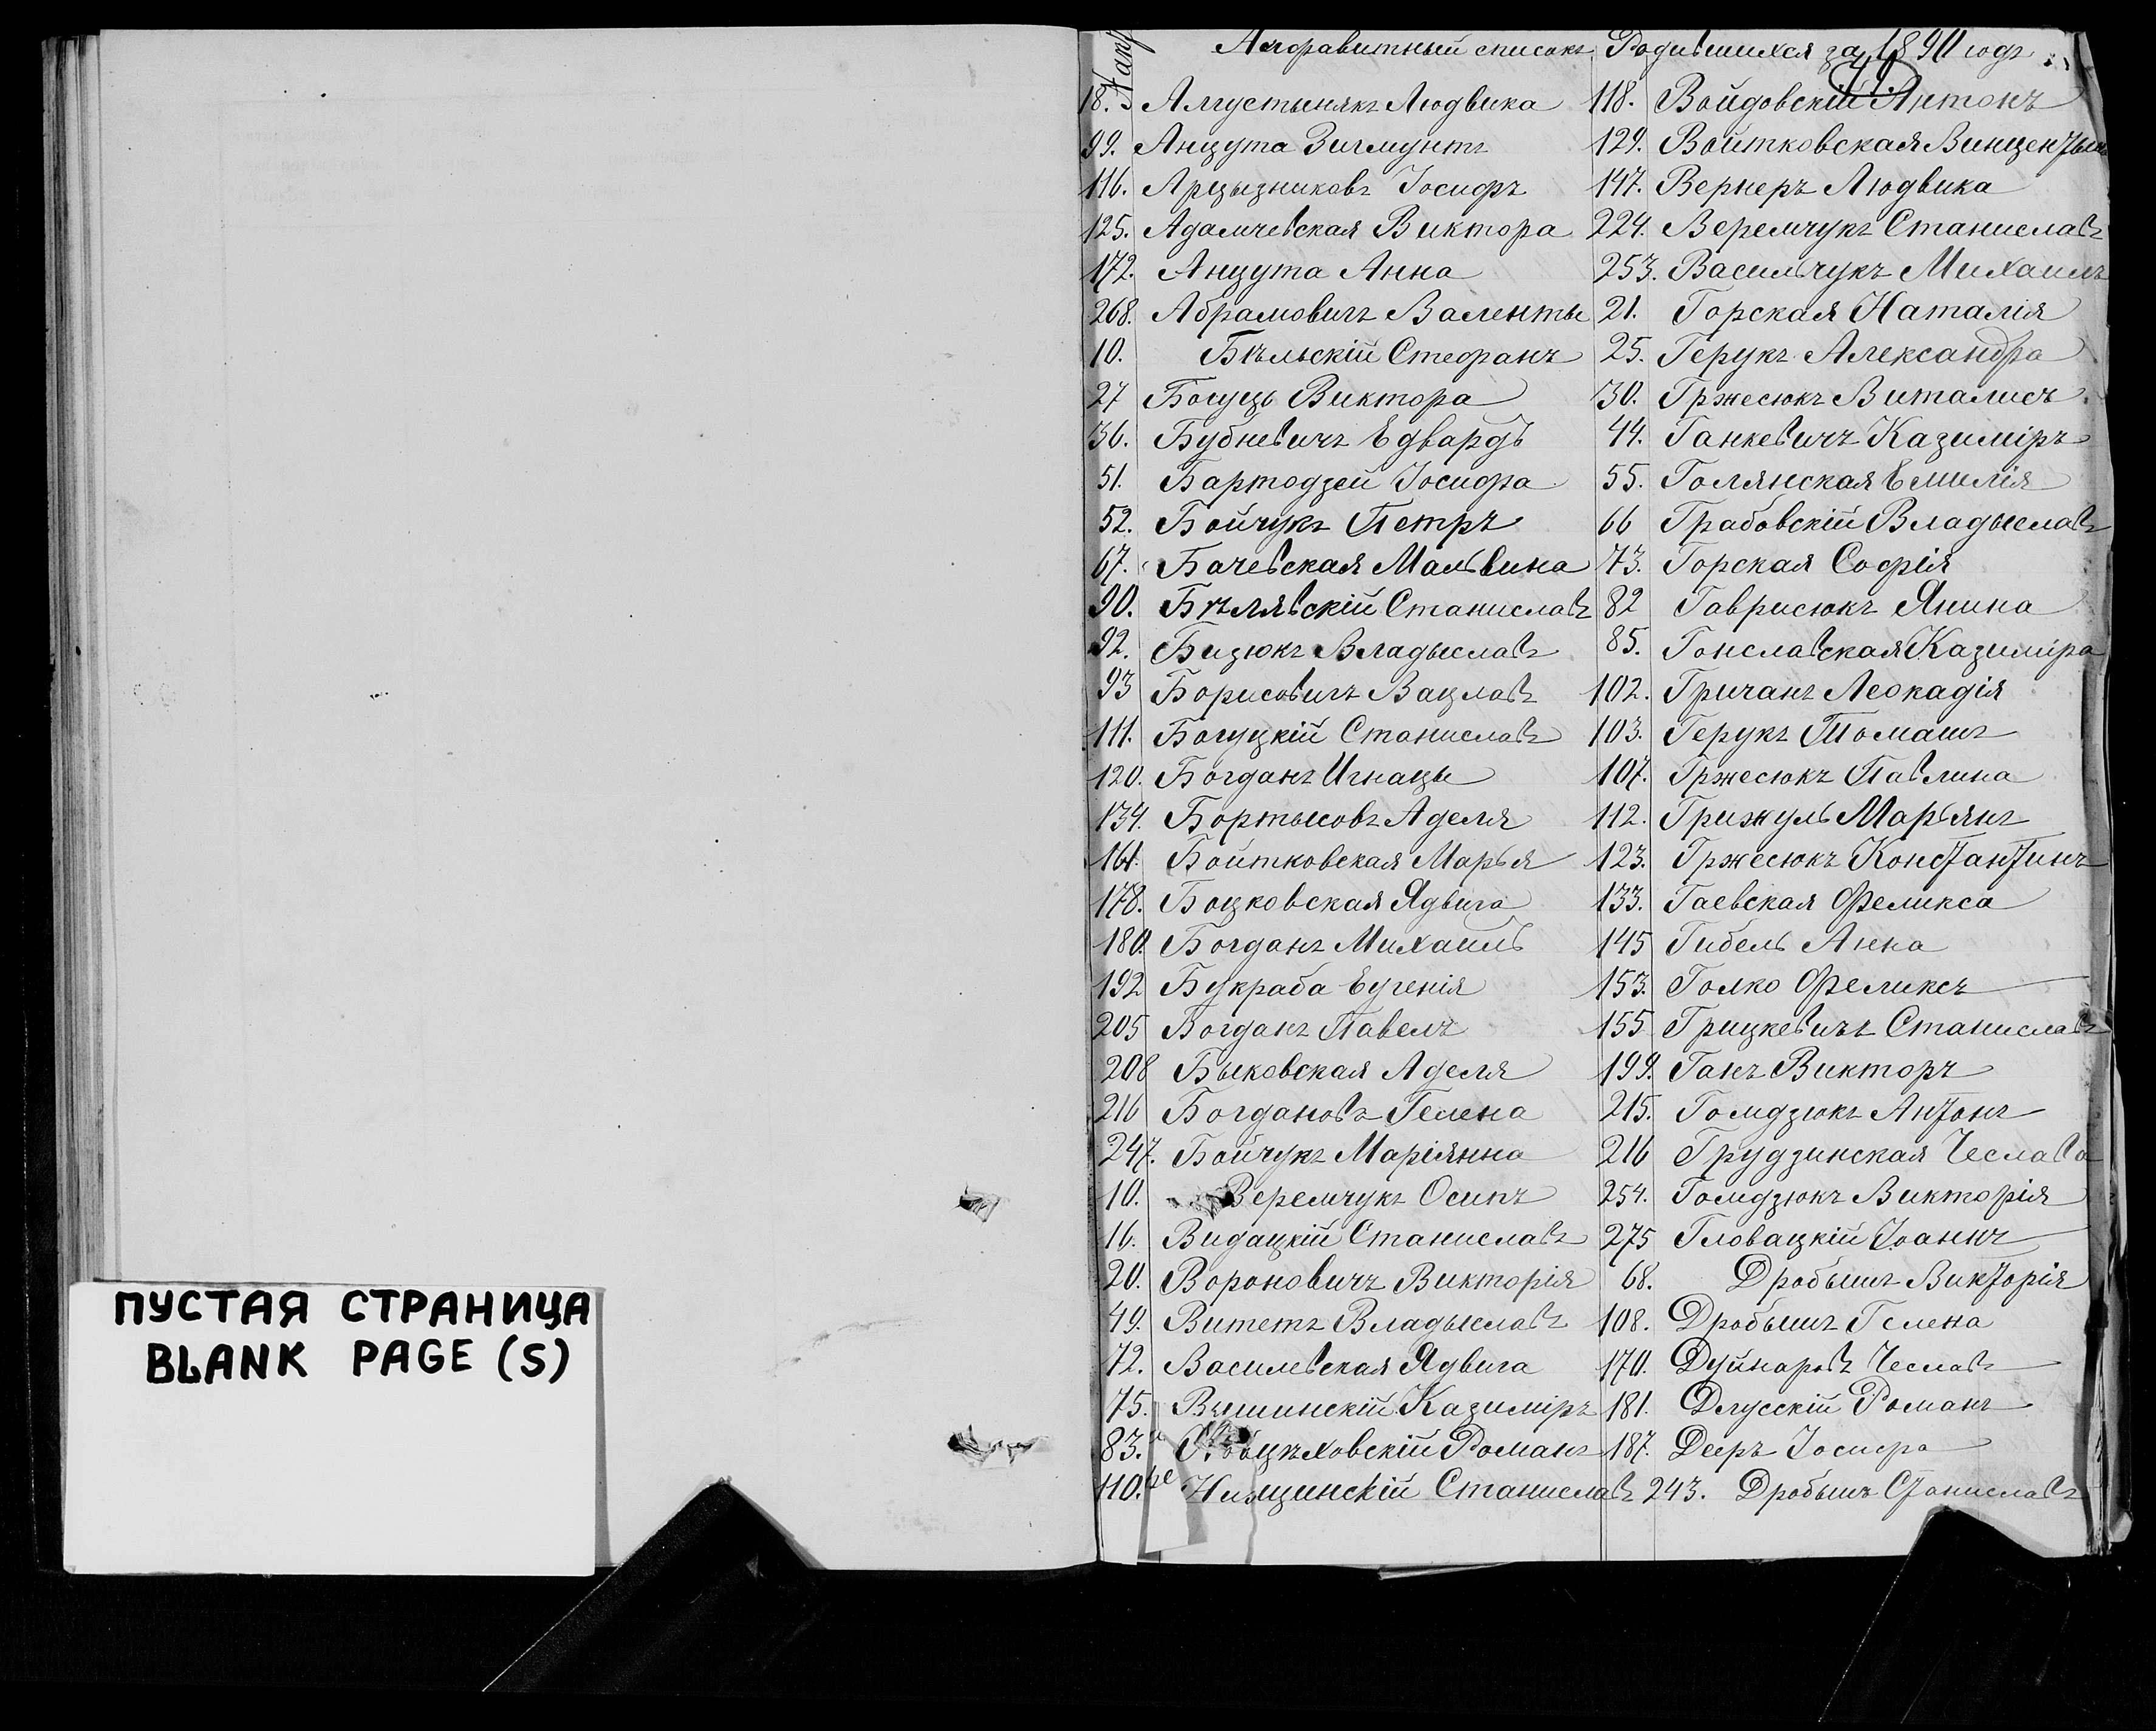 ПУСТАЯ СТРАНИЦА
BLANK PAGE (S)
Алфавитный списокъ Родившихся за 1890 годъ
18. Августынякъ Людвика
99. Анцута Зигмунтъ
116. Арцызниковъ Іосифъ
125. Адамчевская Виктора
172. Анцута Анна
268. Абрамовичъ Валенты
10. Бѣльскій Стефанъ
27 Богуць Виктора
36. Бубневичъ Едвардъ
51. Бартодзей Іосифа
52. Бойчукъ Петръ
67. Бачевская Мальвина
90. Бѣлявскій Станиславъ
92. Бизюкъ Владыславъ
93 Борисовичъ Вацлавъ
111. Богуцкій Станиславъ
120. Богданъ Игнацы
134. Бортысовъ Аделя
161. Войтковская Марья
178. Боцковская Ядвига
180. Богданъ Михаилъ
192 Букраба Еугенія
205 Богданъ Павелъ
208 Быковская Аделя
216 Богдановъ Гелена
247. Бойчукъ Маріянна
10. Веремчукъ Осипъ
16. Видацкій Станиславъ
20. Вороновичъ Викторія
49. Витетъ Владыславъ
72. Василевская Ядвига
75. Вышинскій Казиміръ
83. Романъ
110. Станиславъ
118. Войдовскій Антонъ
129. Войтковская
147. Вернеръ Людвика
224. Веремчукъ Станиславъ
253. Васильчукъ Михаилъ
21. Горская Наталія
25. Герукъ Александра
30. Гржесюкъ Виталисъ
44. Ганкевичъ Казиміръ
55. Голянская Емилія
66 Грабовскій Владыславъ
73. Горская Софія
82 Гаврисюкъ Янина
85. Гонславская Казиміра
102. Гричанъ Леокадія
103. Герукъ Томашъ
107. Гржесюкъ Павлина
112. Грижуль Марьянъ
123. Гржесюкъ Константинъ
133. Гаевская Феликса
145 Гибель Анна
153. Голко Феликсъ
155 Грицкевичъ Станиславъ
199. Ганъ Викторъ
215. Гомдзюкъ Антонъ
216 Грудзинская Чеслава
254. Гомдзюкъ Викторія
275 Гловацкій Іоаннъ
68. Дробышъ Викторія
108. Дробышъ Гелена
170. Дуйнаровъ Чеславъ
181. Длусскій Романъ
187. Дееръ Іосифа
243. Дробышъ Станиславъ